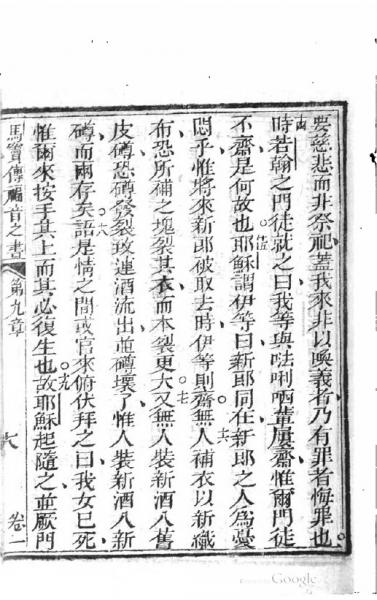 要慈悲而非祭祀蓋我來非以喚義者乃有罪者悔罪也
十四
時若翰之門徒就之曰我等與咈唎哂輩屢齋惟爾門徒
不齋是何故也十五耶穌謂伊等曰新郎同在新郎之人為憂
悶乎惟將來新郎被取去時伊等則齋十六無人補衣以新織
布恐所補之塊裂其衣而本裂更大十七又無人裝新酒入舊
皮罇恐罇發裂致連酒流出並罇壞了惟人裝新酒入新
罇而兩存矣十八語是情之間或官來俯伏拜之曰我女已死
惟爾來按手其上而其必復生也十九故耶穌起隨之並厥門
馬竇傳福音之書 第九章 卷一
Google